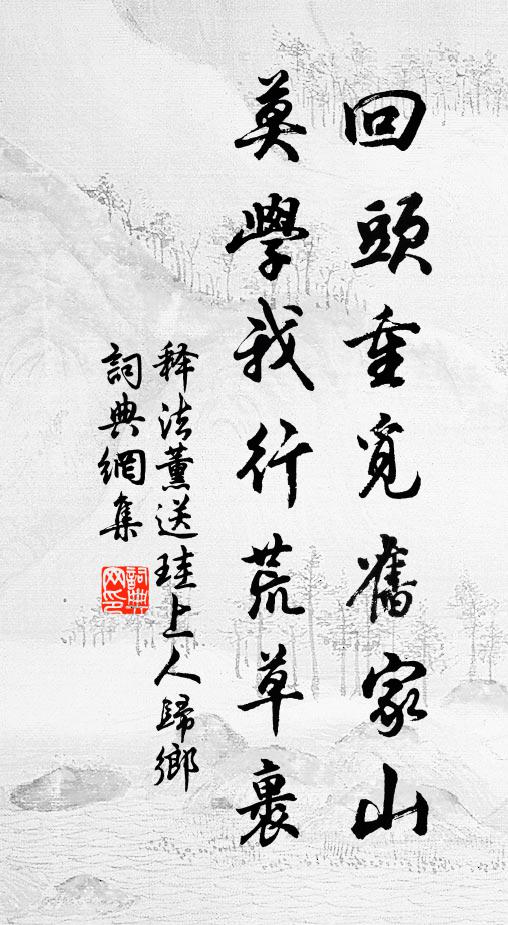 回頭重覓舊家山
莫學我行荒草裹
释法薰送珪上人歸鄉
詞典網集
詞典
网印